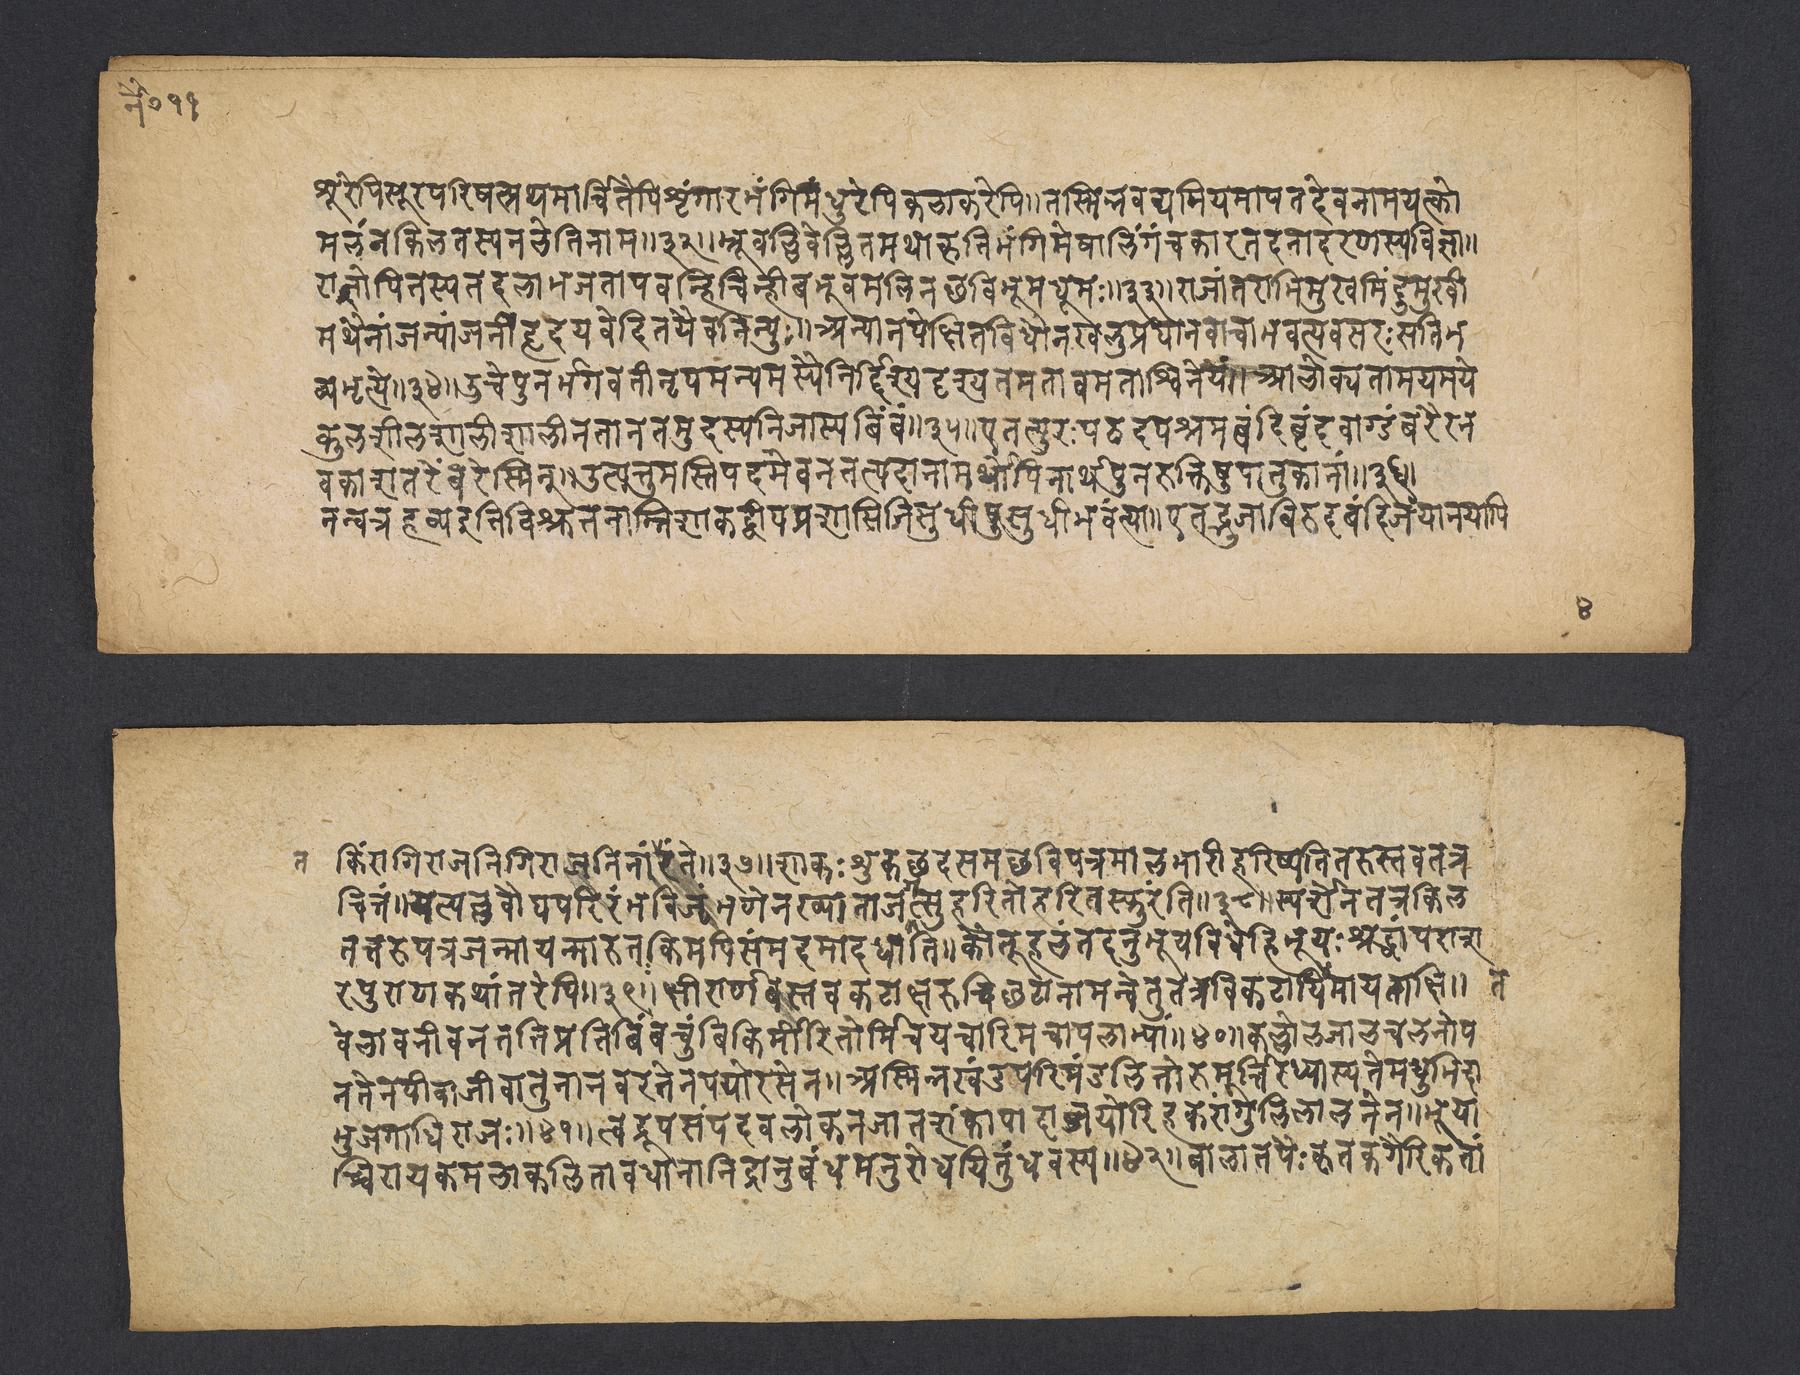 नै० ११
शूरेपिसूरेपरिषत्प्रथमार्चितेपिशृंगारभंगिमधुरेपिकलाकरेपि॥तस्मिन्नवद्यमियमापतदेवनामयत्को
मलंनकिलतस्यनलेतिनाम॥३२॥भ्रूवल्लिवेल्लितमथाकृतिभंगिमेषालिंगंचकारतदनादरणस्यविज्ञा॥
राज्ञोपितस्यतदलाभजतापवन्हिचिन्हीबभूवमलिनछविभूमधूमः॥३३॥राजांतराभिमुखमिंदुमुखी
मथैनांजन्यांजनींहृदयवेदितयैवनिन्युः॥अन्यानपेक्षितविधौनखलुप्रधानवाचाभवत्यवसरःसतिभ
व्यभृत्ये॥३४॥उचेपुनर्भगवतीनृपमन्यमस्यैनिर्दिश्यदृश्यतमतावमताश्विनेयं॥आलोक्यतामयमये
कुलशीलशालीशालीनतानतमुदस्यनिजास्यबिंबं॥३५॥एतत्पुरःपठदपश्रमबंदिबृंदवाग्डंबरैरन
वकाशतरेंबरेस्मिन्॥उत्पत्तुमस्तिपदमेवनतत्पदानामर्थोपिनार्थपुनरुक्तिषुपातुकानां॥३६॥
नन्वत्रहव्यइतिविश्रुतनाम्निशाकद्वीपप्रशासिनिसुधीषुसुधीभवंत्या॥एतद्भुजाबिरुदबंदिजयानयापि
४
किंरागिराजनिगिराजनिनांतरंते॥३७॥शाकःशुकछदसमछविपत्रमालभारीहरिष्यतितरुस्तवतत्र
चित्तं॥यत्पल्लवौघपरिरंभविजृंभणेनख्याताजगत्सुहरितोहरितस्फुरंति॥३८॥स्पर्शेनतत्रकिल
तत्तरुपत्रजन्मायन्मारुतःकिमपिसंमदमादधाति॥कौतूहलंतदनुभूयविधेहिभूयःश्रद्धांपराश
रपुराणकथांतरेपि॥३९॥क्षीरार्णवस्तवकटाक्षरुचिछटानामन्वेतुतत्रविकटायितमायताक्षि॥
वेलावनीवनततिप्रतिबिंबचुंबिकिर्मीरितोर्मिचयचारिमचापलाभ्यां॥४०॥कल्लोलजालचलनोप
नतेनपीवाजीवातुनानवरतेनपयोरसेन॥अस्मिन्नखंडपरिमंडलितोरुमूर्त्तिरध्यास्यतेमधुभिदा
भुजगाधिराजः॥४१॥त्वद्रूपसंपदवलोकनजातशंकापादाब्जयोरिहकरांगुलिलालनेन॥भूया
च्चिरायकमलाकलितावधानानिद्रानुबंधमनुरोधयितुंधवस्य॥४२॥बालातपैःकृतकगैरिकतां